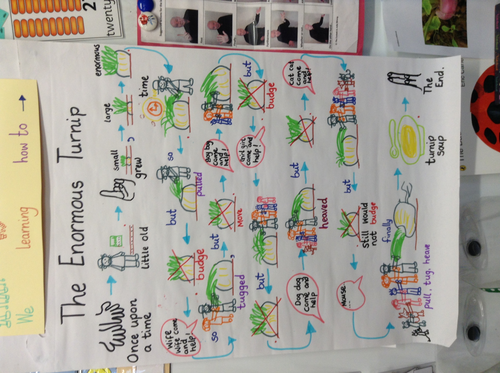 We
Learning
how to →
twenty
The Enormous Turnip
Once upon
a time
little old
small
grew
large
enormous
time
so
but pulled
budge
Wife
wife come
and
help!
so
tugged
but
move
come
and
help!
but
budge
come and
help!
but
Dog dog
come and
help
heaved
but
cat cat
come
and
help!
but
still would
not budge
Mouse
pull, tug, heave
finally
turnip
soup
The
End.